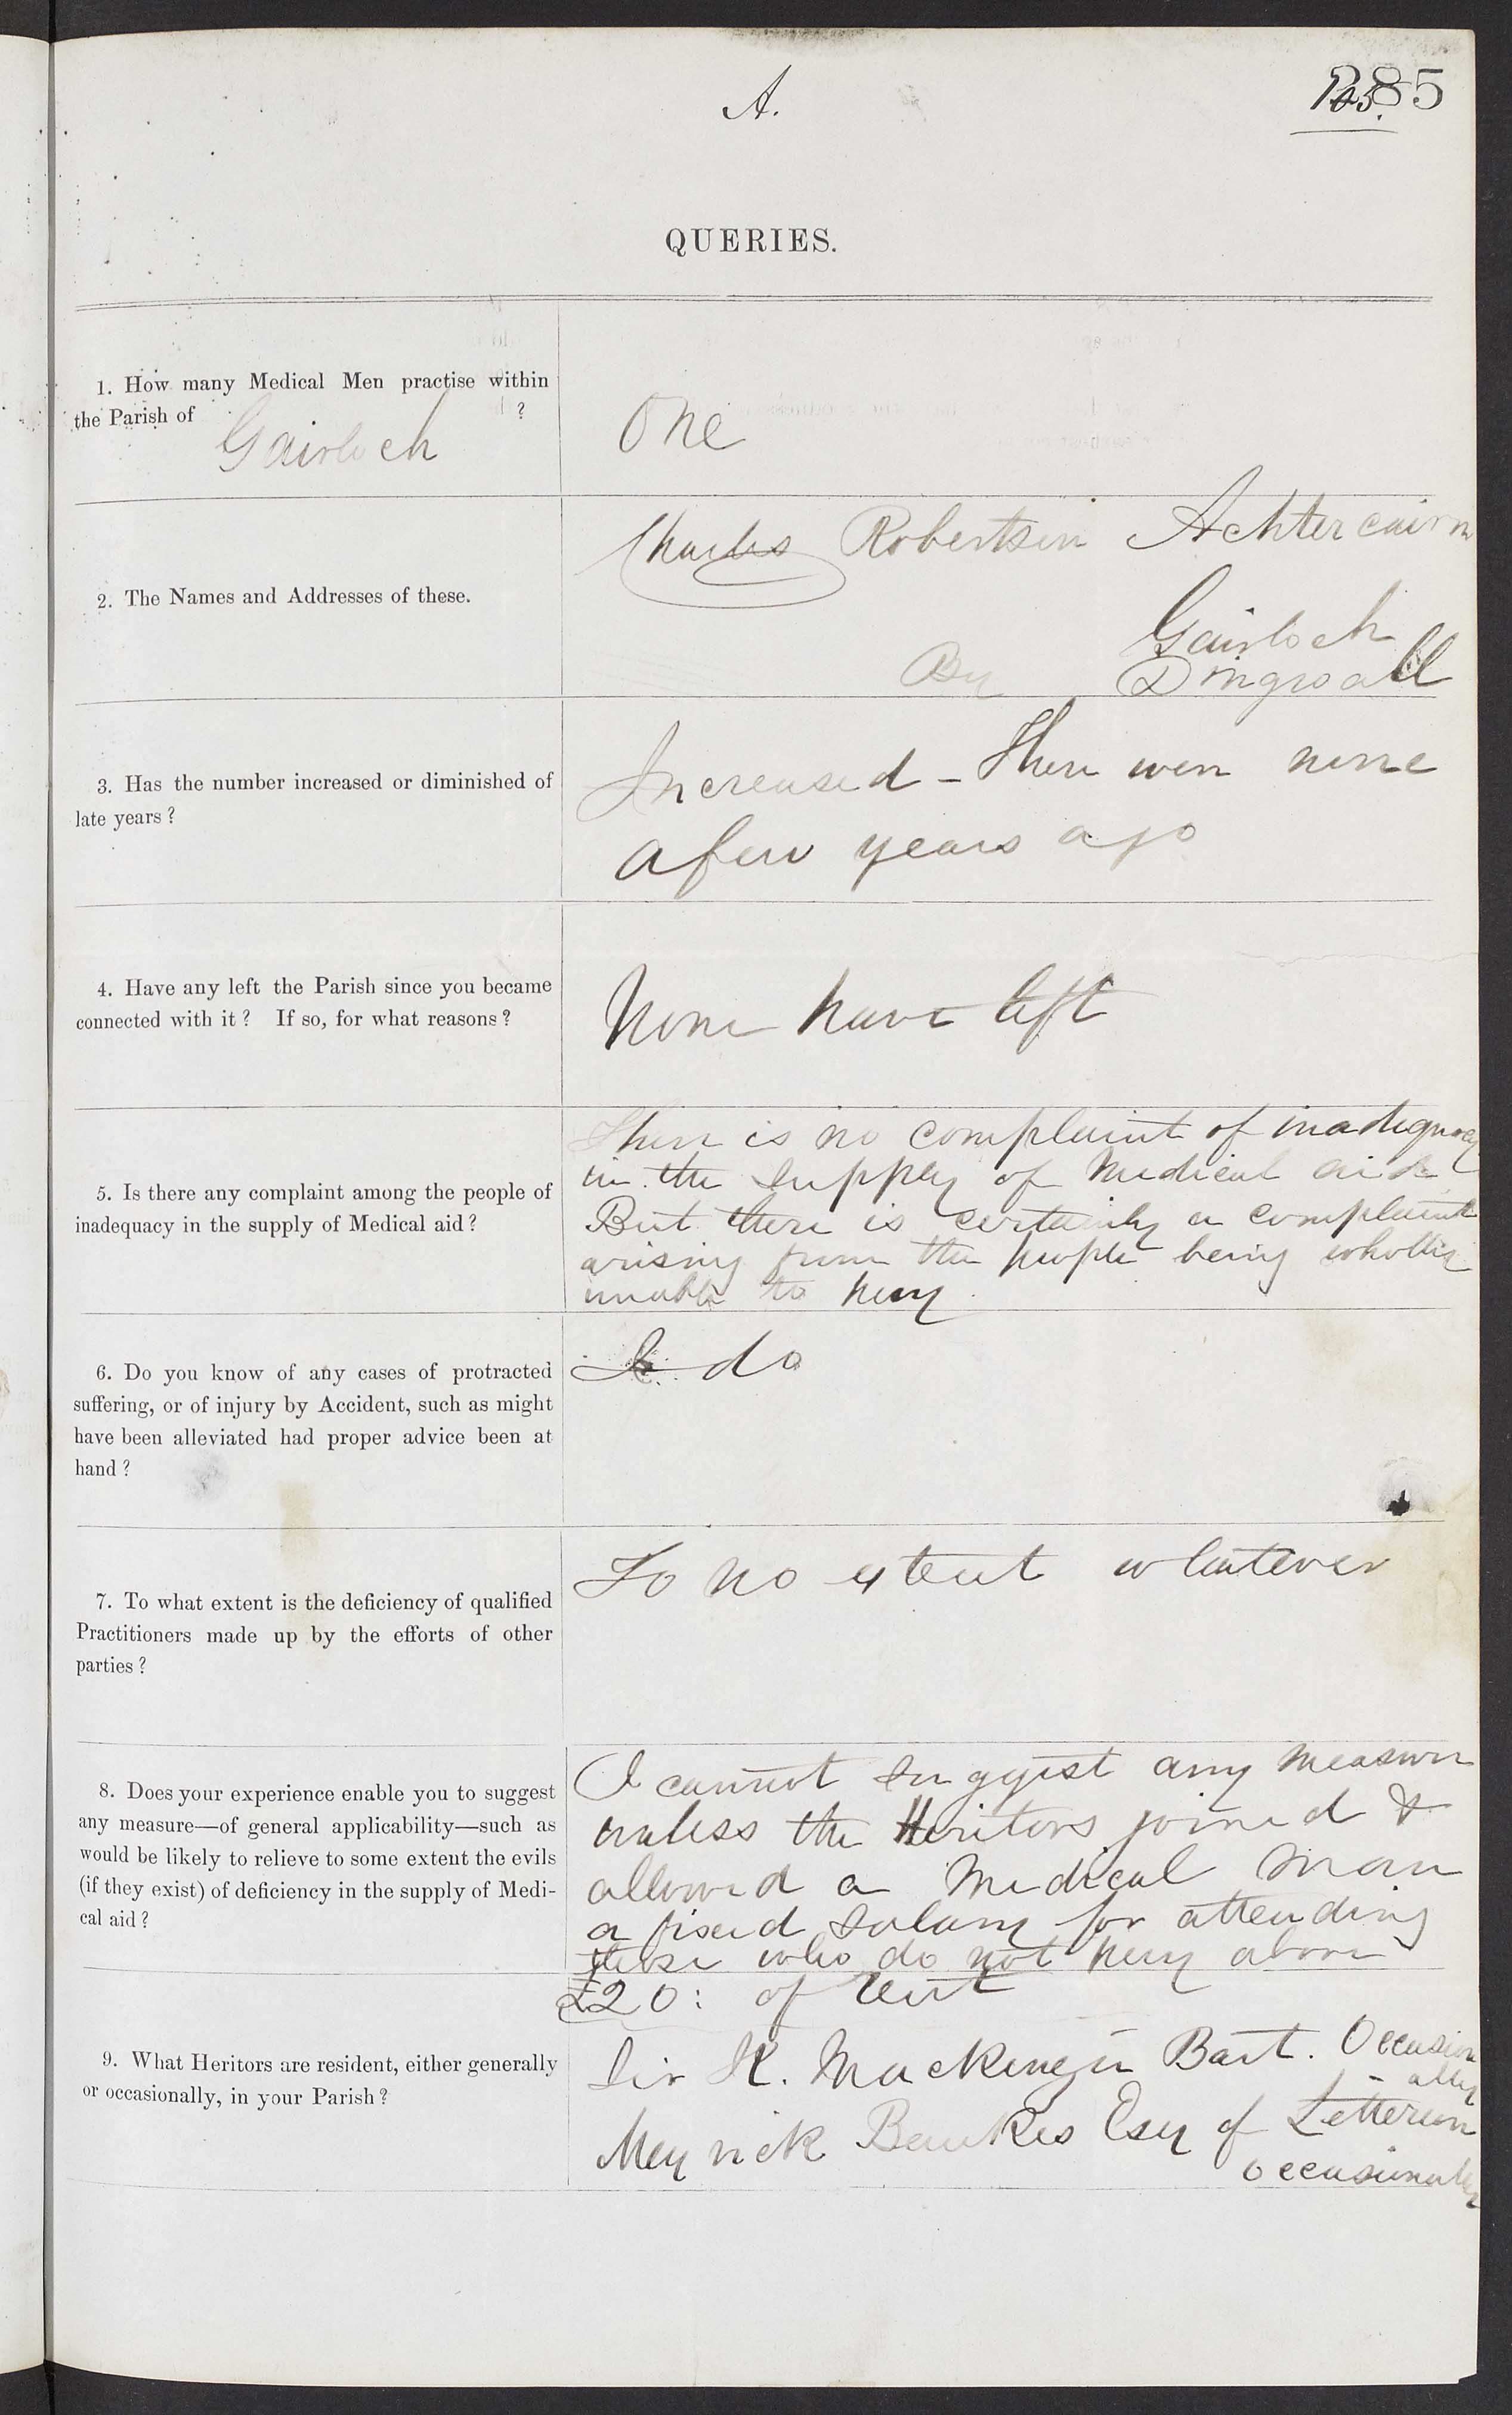 A.
285
QUERIES.
1. How many Medical Men practise within
the Parish of Gairloch ?
One
2. The Names and Addresses of these.
Charles Robertson Achtercairn
Gairloch
By Dingwall
3. Has the number increased or diminished of
late years ?
Increased - There were none
a few years ago
4. Have any left the Parish since you became
connected with it ? If so, for what reasons ?
None have left
5. Is there any complaint among the people of
inadequacy in the supply of Medical aid ?
There is no complaint of inadequacy
in the supply of Medical aid
But there is certainly a complaint
arising from the people being wholly
unable to pay.
6. Do you know of any cases of protracted
suffering, or of injury by Accident, such as might
have been alleviated had proper advice been at
hand ?
I do
7. To what extent is the deficiency of qualified
Practitioners made up by the efforts of other
parties ?
To no extent whatever
8. Does your experience enable you to suggest
any measure—of general applicability—such as
would be likely to relieve to some extent the evils
(if they exist) of deficiency in the supply of Medi-
cal aid ?
I cannot suggest any measure
unless the Heritors joined &
allowed a Medical man
a fixed salary for attending
those who do not pay above
£20: of Rent
9. What Heritors are resident, either generally
or occasionally, in your Parish ?
Sir K. Mackenzie Bart. Occasion
-ally
Meyrick Bankes Esq of Letterewe
occasionally